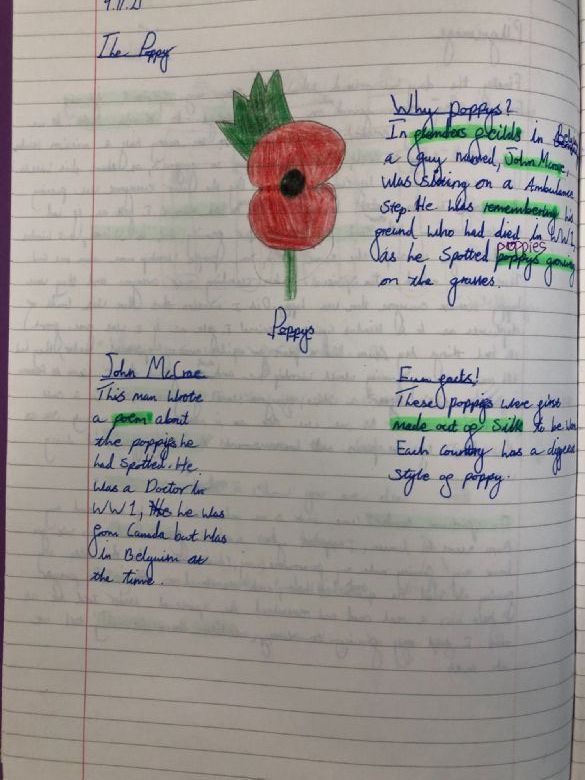 The Poppy
Why poppys?
In flanders feilds in
a guy named, John Mcrae,
was sitting on a Ambulance
step. He was remembering his
freind who had died in WW1,
poppies
as he spotted poppys growing
on the graves.
Poppys
John McCrae
This man wrote
a poem about
the poppys he
had spotted. He
was a Doctor in
WW1, he was
from Canada but was
in Belguim at
the time.
Fun facts!
These poppys were first
made out of silk to be
Each country has a
style of poppy.